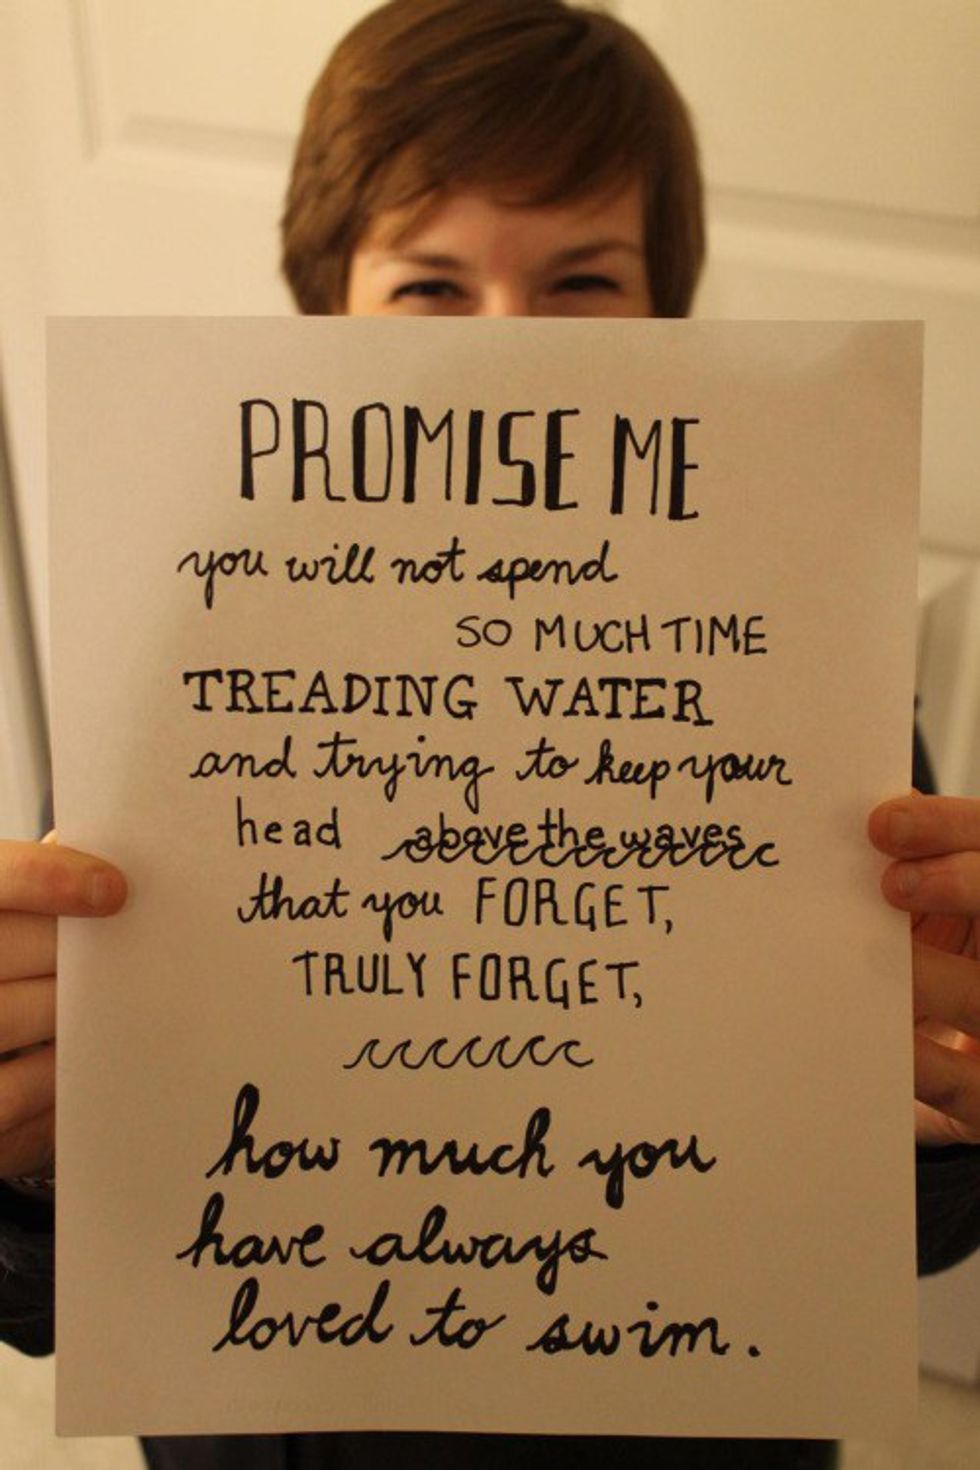 PROMISE ME
you will not spend
SO MUCH TIME
TREADING WATER
and trying to keep your
head above the waves
that you FORGET,
TRULY FORGET,
how much you
have always
loved to swim.